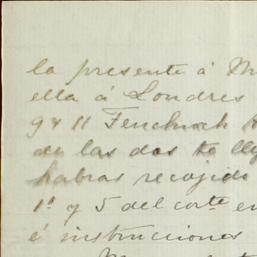 la presente á M
ella á Londres
9 & 11 Fenchurch
de las dos
habras recojido
1º y 5 del corte en
é instrucciones